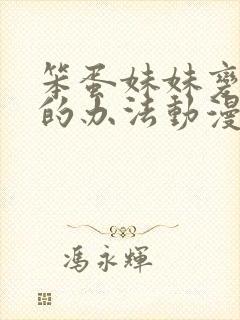 笨蛋妹妹变
的办法動漫
馮永輝